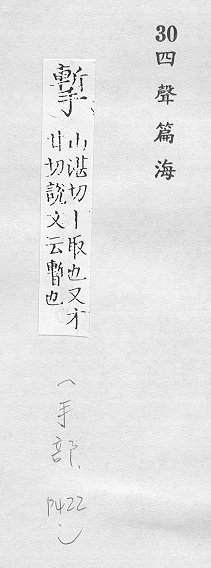 30
四聲篇海
山湛切丨取也又才
甘切說文云暫也
(手部、P422)